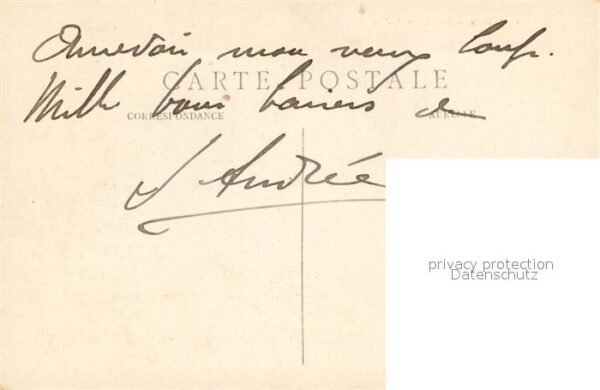 Au revoir mon vieux loup.
CARTE POSTALE
Mille bons baisers de
CORRESPONDANCE ADRESSE
Andrée
privacy protection
Datenschutz